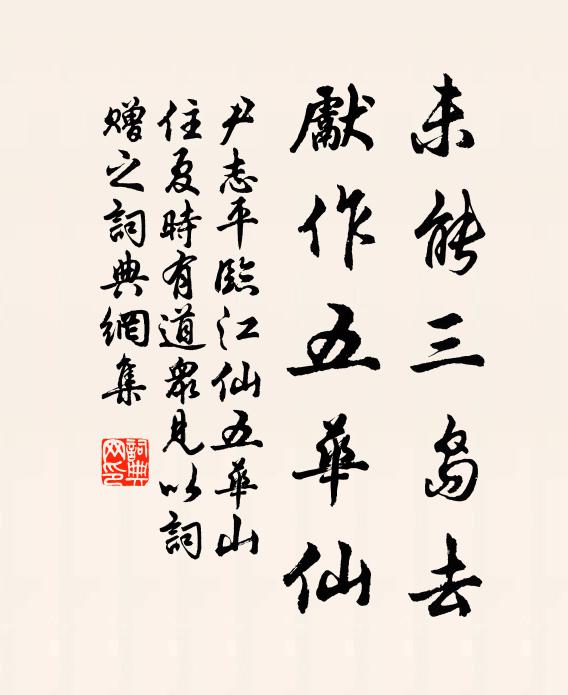 未能三島去
獻作五華仙
尹志平臨江仙五華山
住夏時有道眾見以詞
贈之詞典網集
詞典
網印